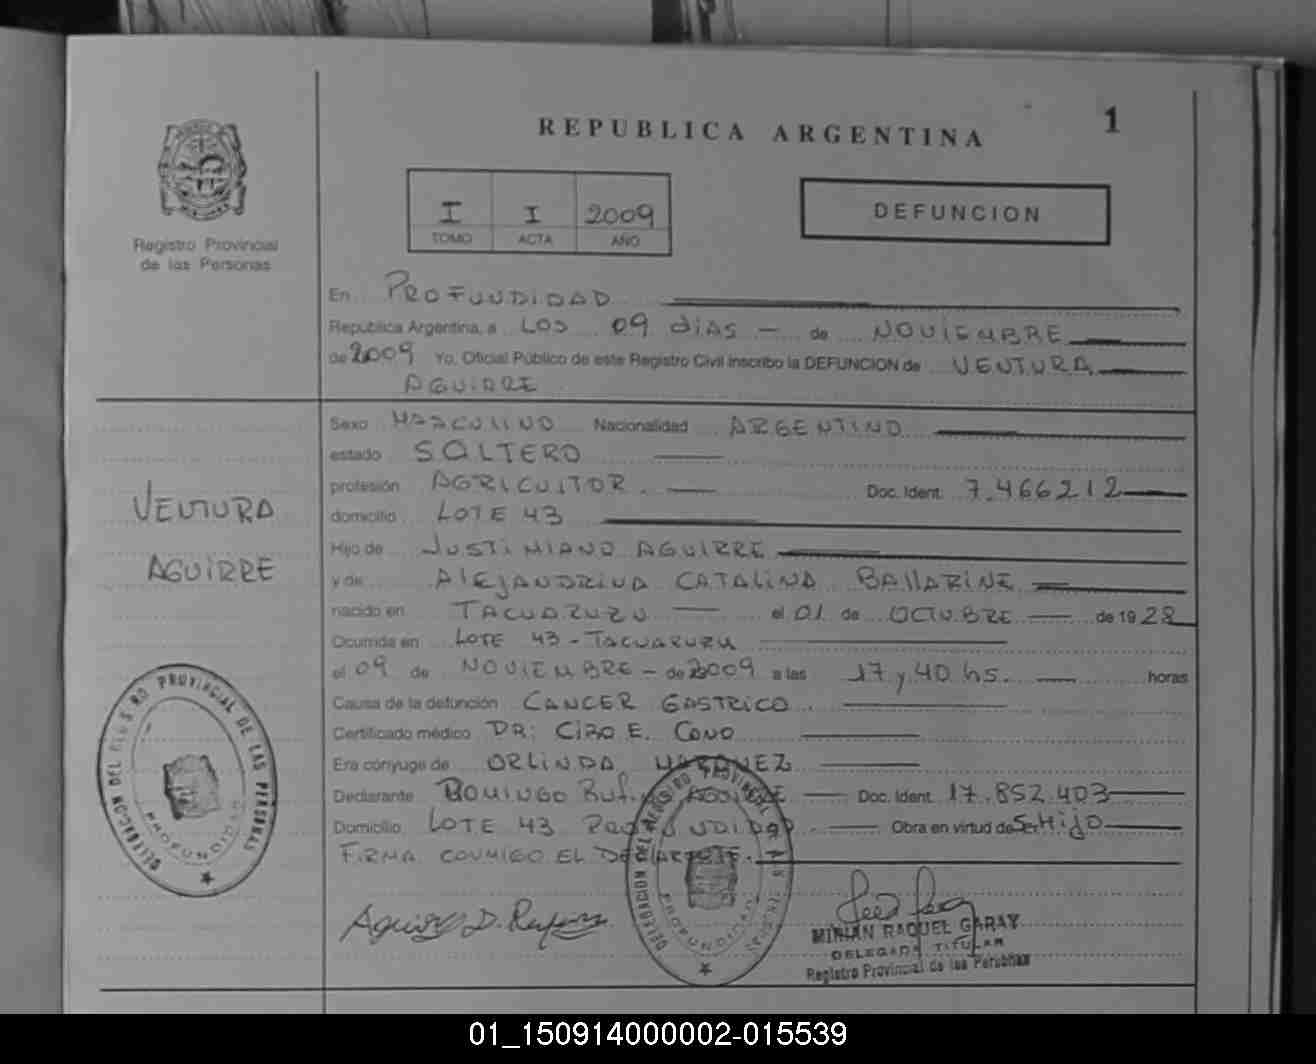 1
REPUBLICA ARGENTINA
I I 2009
TOMO ACTA AÑO
DEFUNCION
Registro Provincial
de las Personas
En PROFUNDIDAD
Republica Argentina, a LOS 09 DIAS - de NOVIEMBRE
de 2009 Yo, Oficial Público de este Registro Civil inscribo la DEFUNCION de VENTURA
AGUIRRE
Sexo MASCULINO Nacionalidad ARGENTINO
estado SOLTERO
profesión AGRICULTOR. Doc. Ident. 7.466212
domicilio LOTE 43
Hijo de JUSTINIANO AGUIRRE
y de ALEJANDRINA CATALINA BALLARINE
nacido en TACUARUZU el 01 de OCTUBRE de 1928
Ocurrida en LOTE 43 - TACUARUZU
el 09 de NOVIEMBRE - de 2009 a las 17 y 40 hs. horas
Causa de la defunción CANCER GASTRICO
Certificado médico DR: CIRO E. CANO
Era cónyuge de ORLINDA
Declarante DOMINGO AGUIRRE Doc. Ident. 17.852.403
Domicilio LOTE 43 PROFUNDIDAD Obra en virtud de Ser HIJO
FIRMA CONMIGO EL DECLARANTE.
VENTURA
AGUIRRE
DELEGACION DEL REGISTRO PROVINCIAL DE LAS PERSONAS
PROFUNDIDAD
Aguirre D. Rufino
DELEGACION DEL REGISTRO PROVINCIAL DE LAS PERSONAS
PROFUNDIDAD
MIRIAN RAQUEL GARAY
DELEGADA TITULAR
Registro Provincial de las Personas
01_150914000002-015539